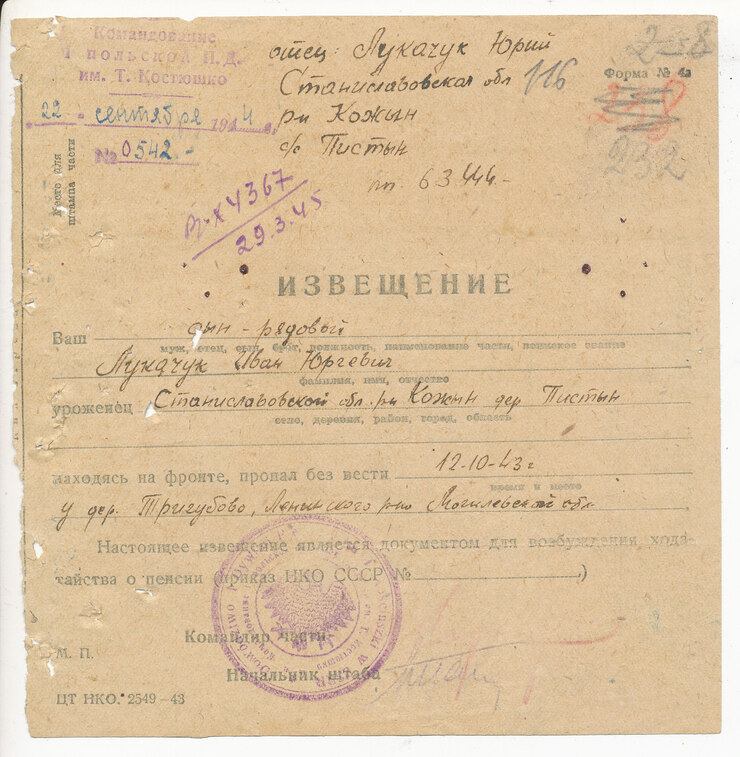 Командование
1 польской П.Д.
им. Т. Костюшко
22 - сентября 1944 г.
№ 0542 -
Место для
штампа части
отец: Лукачук Юрий
Станиславовская обл
рн Кожын
с/с Пистын
пп. 63444-
116
2-58
Форма № 4а
232
4367
29.3.45
ИЗВЕЩЕНИЕ
Ваш сын - рядовый
муж, отец, сын, брат, должность, наименование части, воинское звание
Лукачук Иван Юргевич
фамилия, имя, отчество
уроженец Станиславовской обл. рн Кожын дер Пистын
село, деревня, район, город, область
находясь на фронте, пропал без вести 12-10-43 г
время и место
у дер. Тригубово, Ленинского р-на Могилевской обл.
Настоящее извещение является документом для возбуждения хода-
тайства о пенсии (приказ НКО СССР № .)
Командир части
М. П.
Начальник штаба
ЦТ НКО. 2549-43